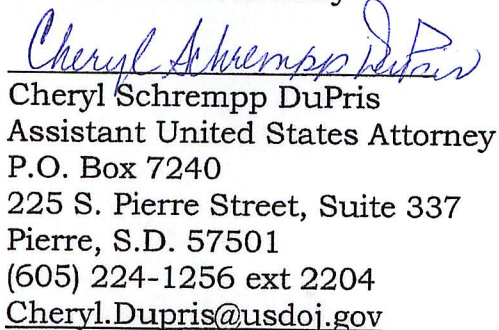 Cheryl Schrempp DuPris
Cheryl Schrempp DuPris
Assistant United States Attorney
P.O. Box 7240
225 S. Pierre Street, Suite 337
Pierre, S.D. 57501
(605) 224-1256 ext 2204
Cheryl.Dupris@usdoj.gov